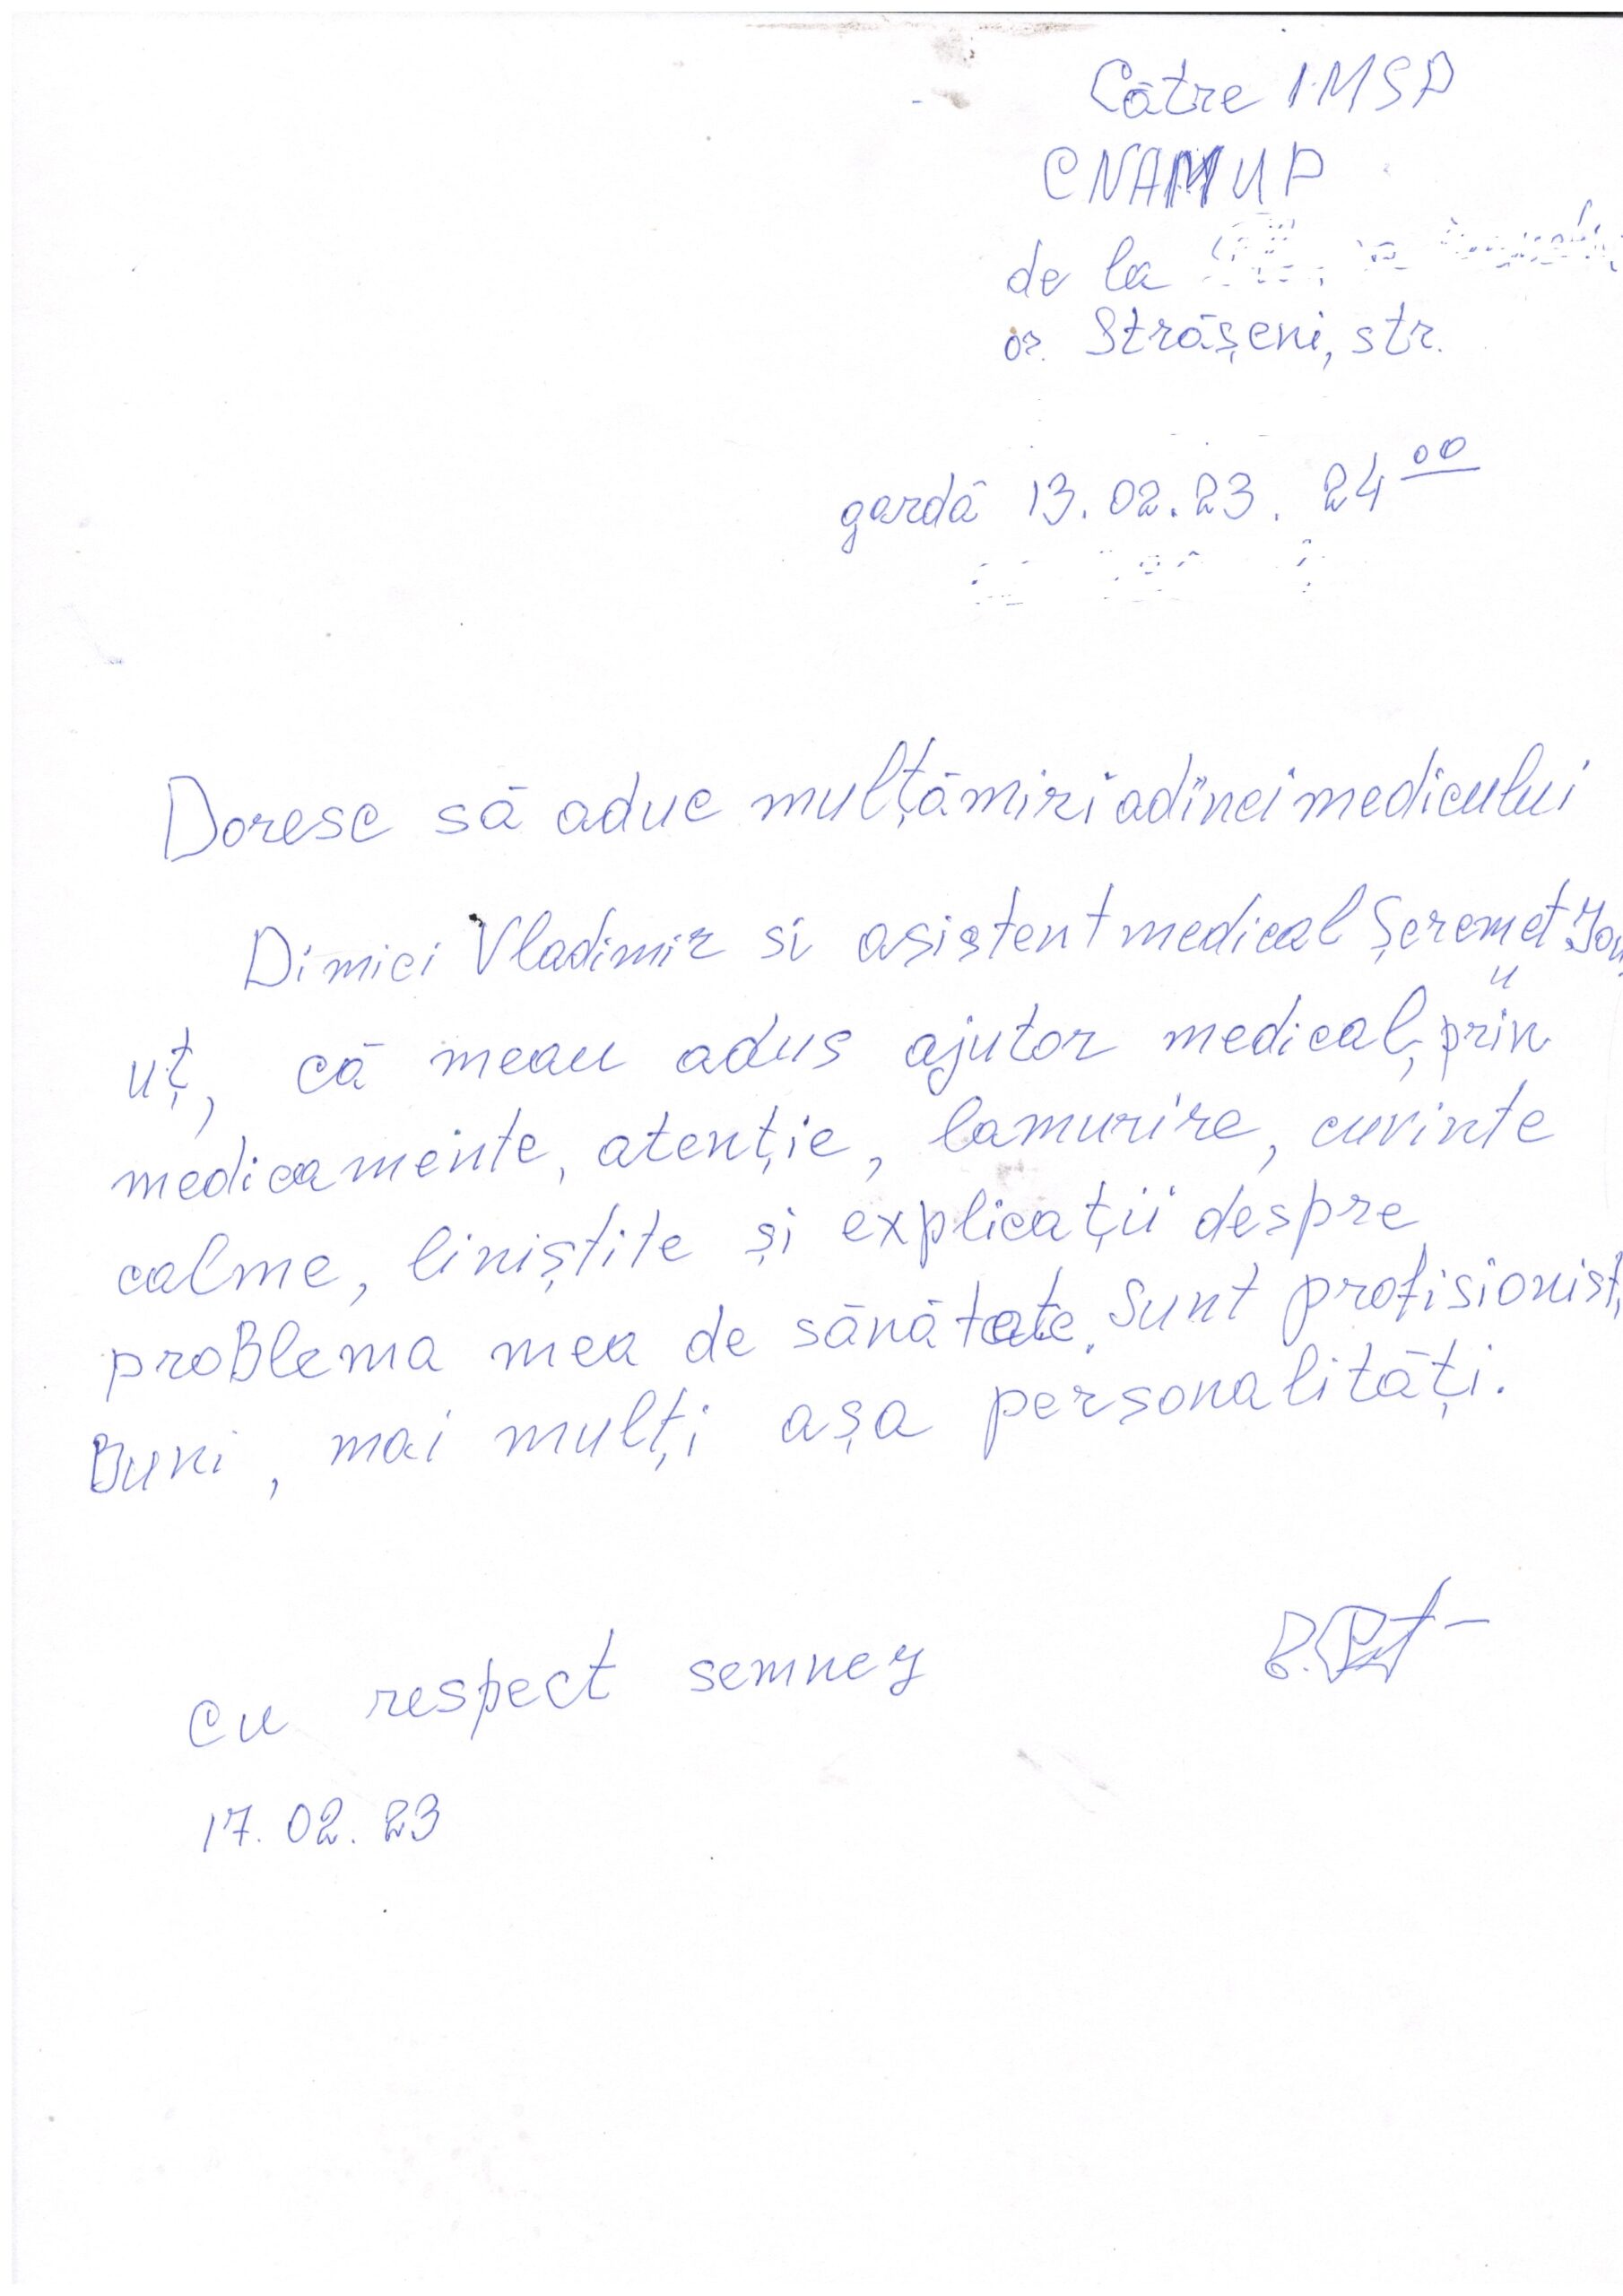 Către IMSP
CNAMUP
de la
or. Strășeni, str.
gardă 13.02.23. 24 00
Doresc să aduc mulțămiri adînci medicului
Dimici Vladimir si asistent medical Șeremet Ion
uț, că meau adus ajutor medical, prin
medicamente, atenție, lamurire, cuvinte
calme, liniștite și explicații despre
problema mea de sănătate. Sunt profisionist,
Buni, mai mulți așa personalități.
cu respect semnez
17.02.23